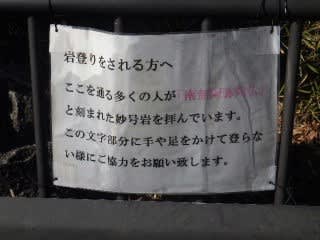 岩登りをされる方へ
ここを通る多くの人が「南無阿弥陀仏」
と刻まれた妙号岩を拝んでいます。
この文字部分に手や足をかけて登らな
い様にご協力をお願い致します。